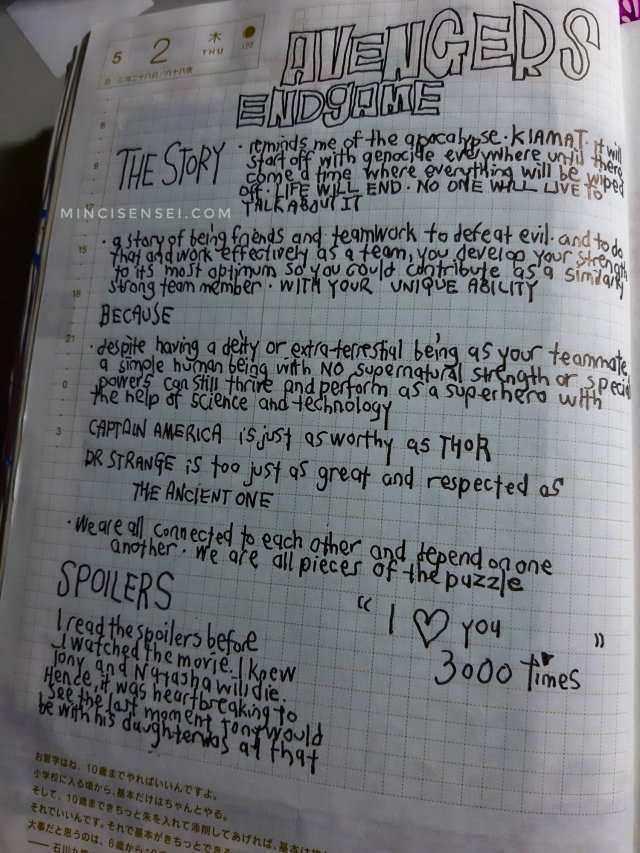 5 2 木 THU 122
AVENGERS
ENDGAME
6
9
15
18
21
0
3
THE STORY
• reminds me of the apocalypse. KIAMAT. it will
start off with genocide everywhere until there
come a time where everything will be wiped
off. LIFE WILL END. NO ONE WILL LIVE TO
TALK ABOUT IT
MINCISENSEI.COM
• a story of being friends and teamwork to defeat evil. and to do
that and work effectively as a team, you develop your strength
to its most optimum so you could contribute as a similarly
strong team member. WITH YOUR UNIQUE ABILITY
BECAUSE
• despite having a deity or extra-terrestial being as your teammate
a simple human being with NO supernatural strength or special
powers can still thrive and perform as a superhero with
the help of science and technology
CAPTAIN AMERICA is just as worthy as THOR
DR STRANGE is too just as great and respected as
THE ANCIENT ONE
• we are all connected to each other and depend on one
another. we are all pieces of the puzzle
SPOILERS
I read the spoilers before
I watched the movie. I knew
Tony and Natasha will die.
Hence it was heartbreaking to
see the last moment Tony would
be with his daughter was at that
“ I ♡ you ”
3000 times
お習字はね、10歳までやればいいんですよ。
小学校に入る頃から、基本だけはちゃんとやる。
そして、10歳まできちっと朱を入れて添削してあげれば、基本は
それでいいんです。それで基本がきちっとできる
大事だと思うのは、6歳から